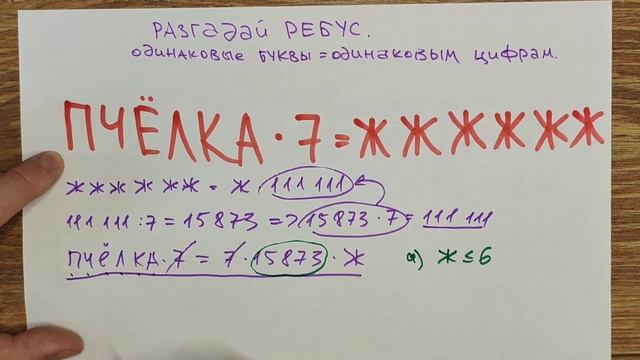 РАЗГАДАЙ РЕБУС.
ОДИНАКОВЫЕ БУКВЫ = ОДИНАКОВЫМ ЦИФРАМ.
ПЧЁЛКА · 7 = ЖЖЖЖЖЖ
ЖЖЖЖЖЖ = Ж · 111 111
111 111 : 7 = 15873 => 15873 · 7 = 111 111
ПЧЁЛКА · 7 = 7 · 15873 · Ж а) Ж ≤ 6